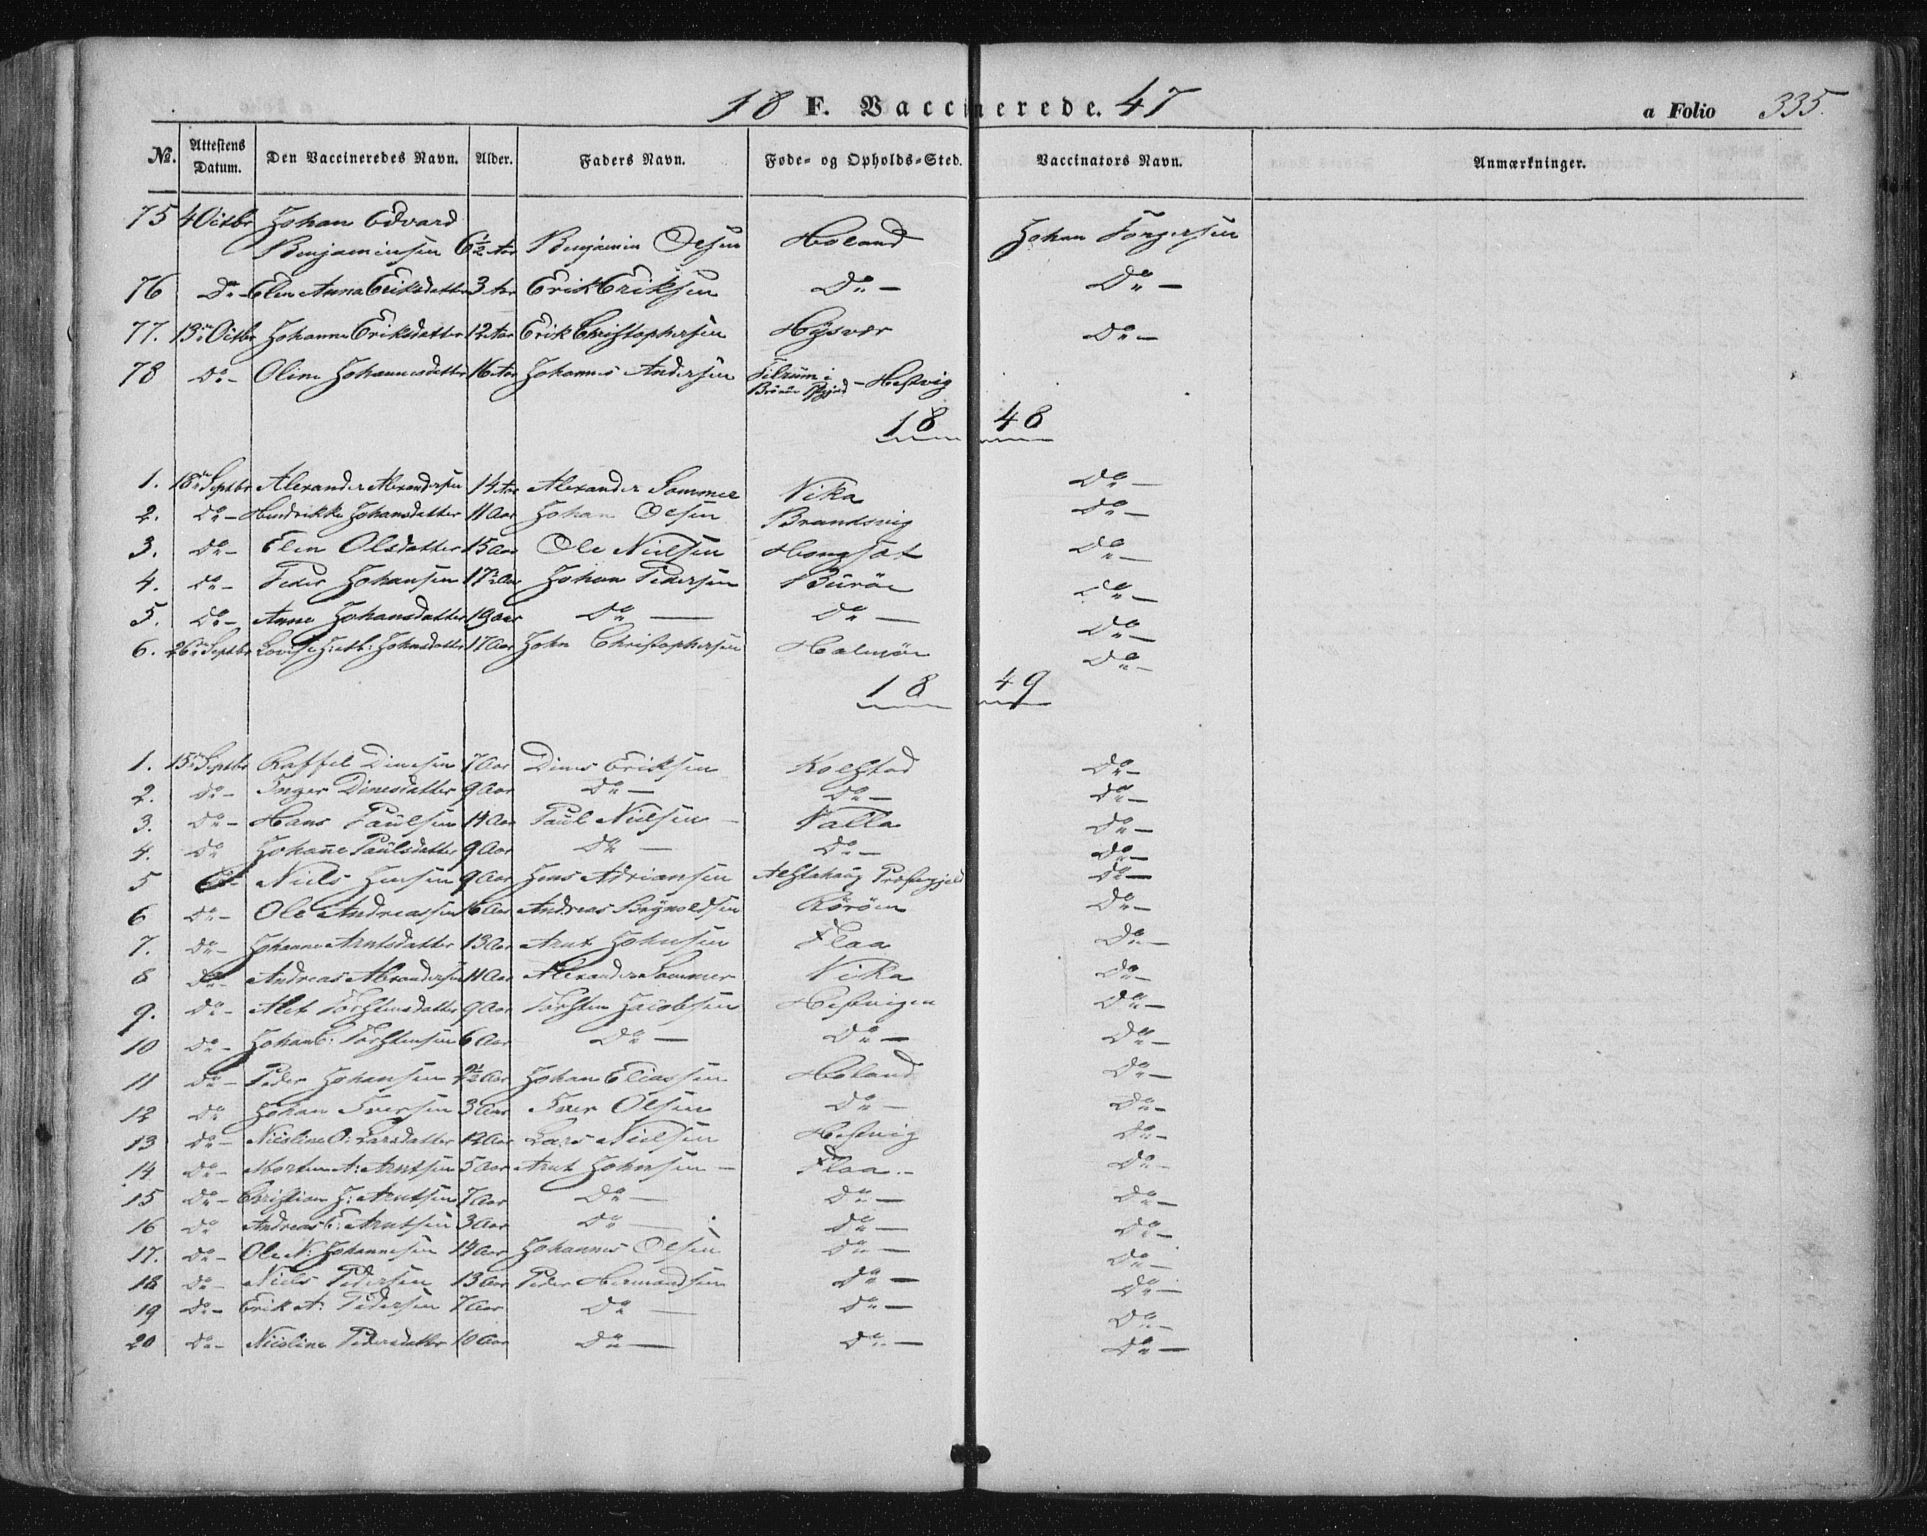 18 F. Vaccinerede. 47 a Folio 335.
No. Attestens Datum. Den Vaccineredes Navn. Alder. Faders Navn. Føde- og Opholds-Sted. Vaccinators Navn. Anmærkninger.
75 4 Octbr Johan Edvard
Benjaminsen 6½ Aar Benjamin Olsen Holand Johan Torgersen
76 Do- Elen Anna Eriksdatter 3 Aar Erik Eriksen Do- Do-
77. 13de Octbr Johanne Eriksdatter 12 Aar Erik Christophersen Høysvær Do-
78 Do- Oline Johannesdatter 16 Aar Johannes Andersen Tilrum i Brönöe Pgjeld - Hestvig
18 48
1. 18de Septbr Alexander Alexandersen 14 Aar Alexander Sommer Vika Do-
2. Do- Hendrikke Johansdatter 11 Aar Johan Olsen Brandsvig Do-
3. Do- Elen Olsdatter 15 Aar Ole Nielsen Hongset Do-
4. Do- Peder Johansen 17½ Aar Johan Pedersen Buröe Do-
5. Do- Anne Johansdatter 19 Aar Do- Do- Do-
6. 26de Septbr Lovise Johnsdatter 17 Aar John Christophersen Halmöe Do-
18 49
1. 15de Septbr Raffel Dinesen 7 Aar Dines Eriksen Kolstad Do-
2. Do- Inger Dinesdatter 9 Aar Do- Do- Do-
3. Do- Hans Paulsen 14 Aar Paul Nielsen - Valla Do-
4. Do Johanne Paulsdatter 9 Aar Do- Do- Do-
5 Do- Niels Jensen 9 Aar Jens Adriansen Alstahaug Præstegjeld Do-
6 Do- Ole Andreassen 16 Aar Andreas Brynoldsen Röröen Do-
7. Do- Johanne Arntsdatter 13 Aar Arnt Johnsen Flaa Do-
8 Do- Andreas Alexandersen 11 Aar Alexander Sommer Vika Do-
9. Do- Alet Torstensdatter 9 Aar Torsten Jacobsen Hestvigen Do-
10 Do- Johan C: Torstensen 6 Aar Do- Do- Do-
11 Do- Peder Johansen 9½ Aar Johan Eliassen Holand Do-
12 Do Johan Iversen 3 Aar Iver Olsen Do- Do-
13 Do- Nicoline O: Larsdatter 12 Aar Lars Nielsen Hestvig Do-
14 Do- Morten A: Arntsen 5 Aar Arnt Johnsen - Flaa - Do-
15 Do- Christian J: Arntsen 7 Aar Do- Do- Do-
16 Do Andreas E: Arntsen 3 Aar Do- Do- Do-
17. Do- Ole N: Johannesen 14 Aar Johannes Olsen Do- Do-
18 Do- Niels Pedersen 13 Aar Peder Hermandsen Do- Do-
19 Do- Erik A: Pedersen 7 Aar Do- Do- Do-
20 Do- Nicoline Pedersdatter 10 Aar Do- Do- Do-